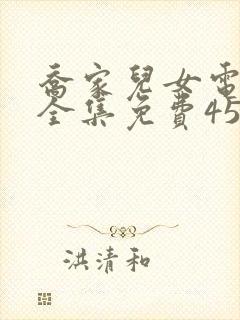 喬家兒女電
全集免費45
洪清和